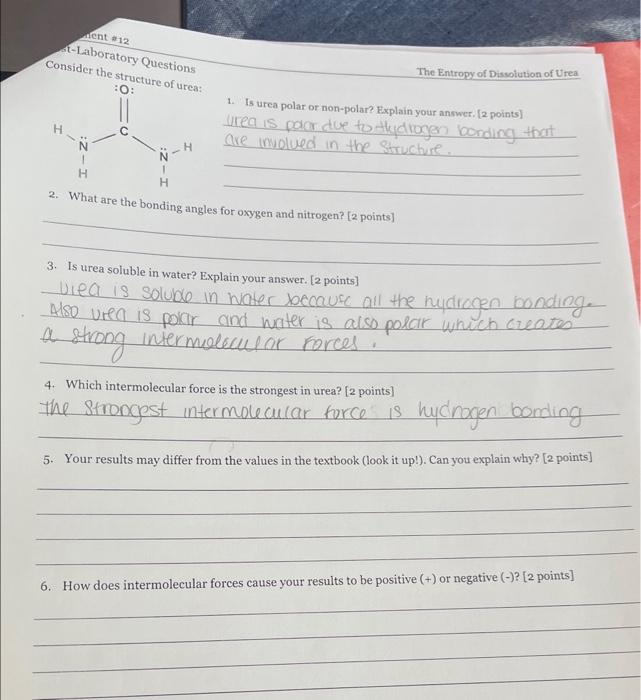 ment #12
st-Laboratory Questions
The Entropy of Dissolution of Urea
Consider the structure of urea:
:O:
C
H N N H
H H
1. Is urea polar or non-polar? Explain your answer. [2 points]
urea is polar due to Hydrogen bonding that
are involved in the structure.
2. What are the bonding angles for oxygen and nitrogen? [2 points]
3. Is urea soluble in water? Explain your answer. [2 points]
Urea is soluble in water because all the hydrogen bonding.
Also urea is polar and water is also polar which creates
a strong intermolecular forces.
4. Which intermolecular force is the strongest in urea? [2 points]
the strongest intermolecular force is hydrogen bonding
5. Your results may differ from the values in the textbook (look it up!). Can you explain why? [2 points]
6. How does intermolecular forces cause your results to be positive (+) or negative (-)? [2 points]